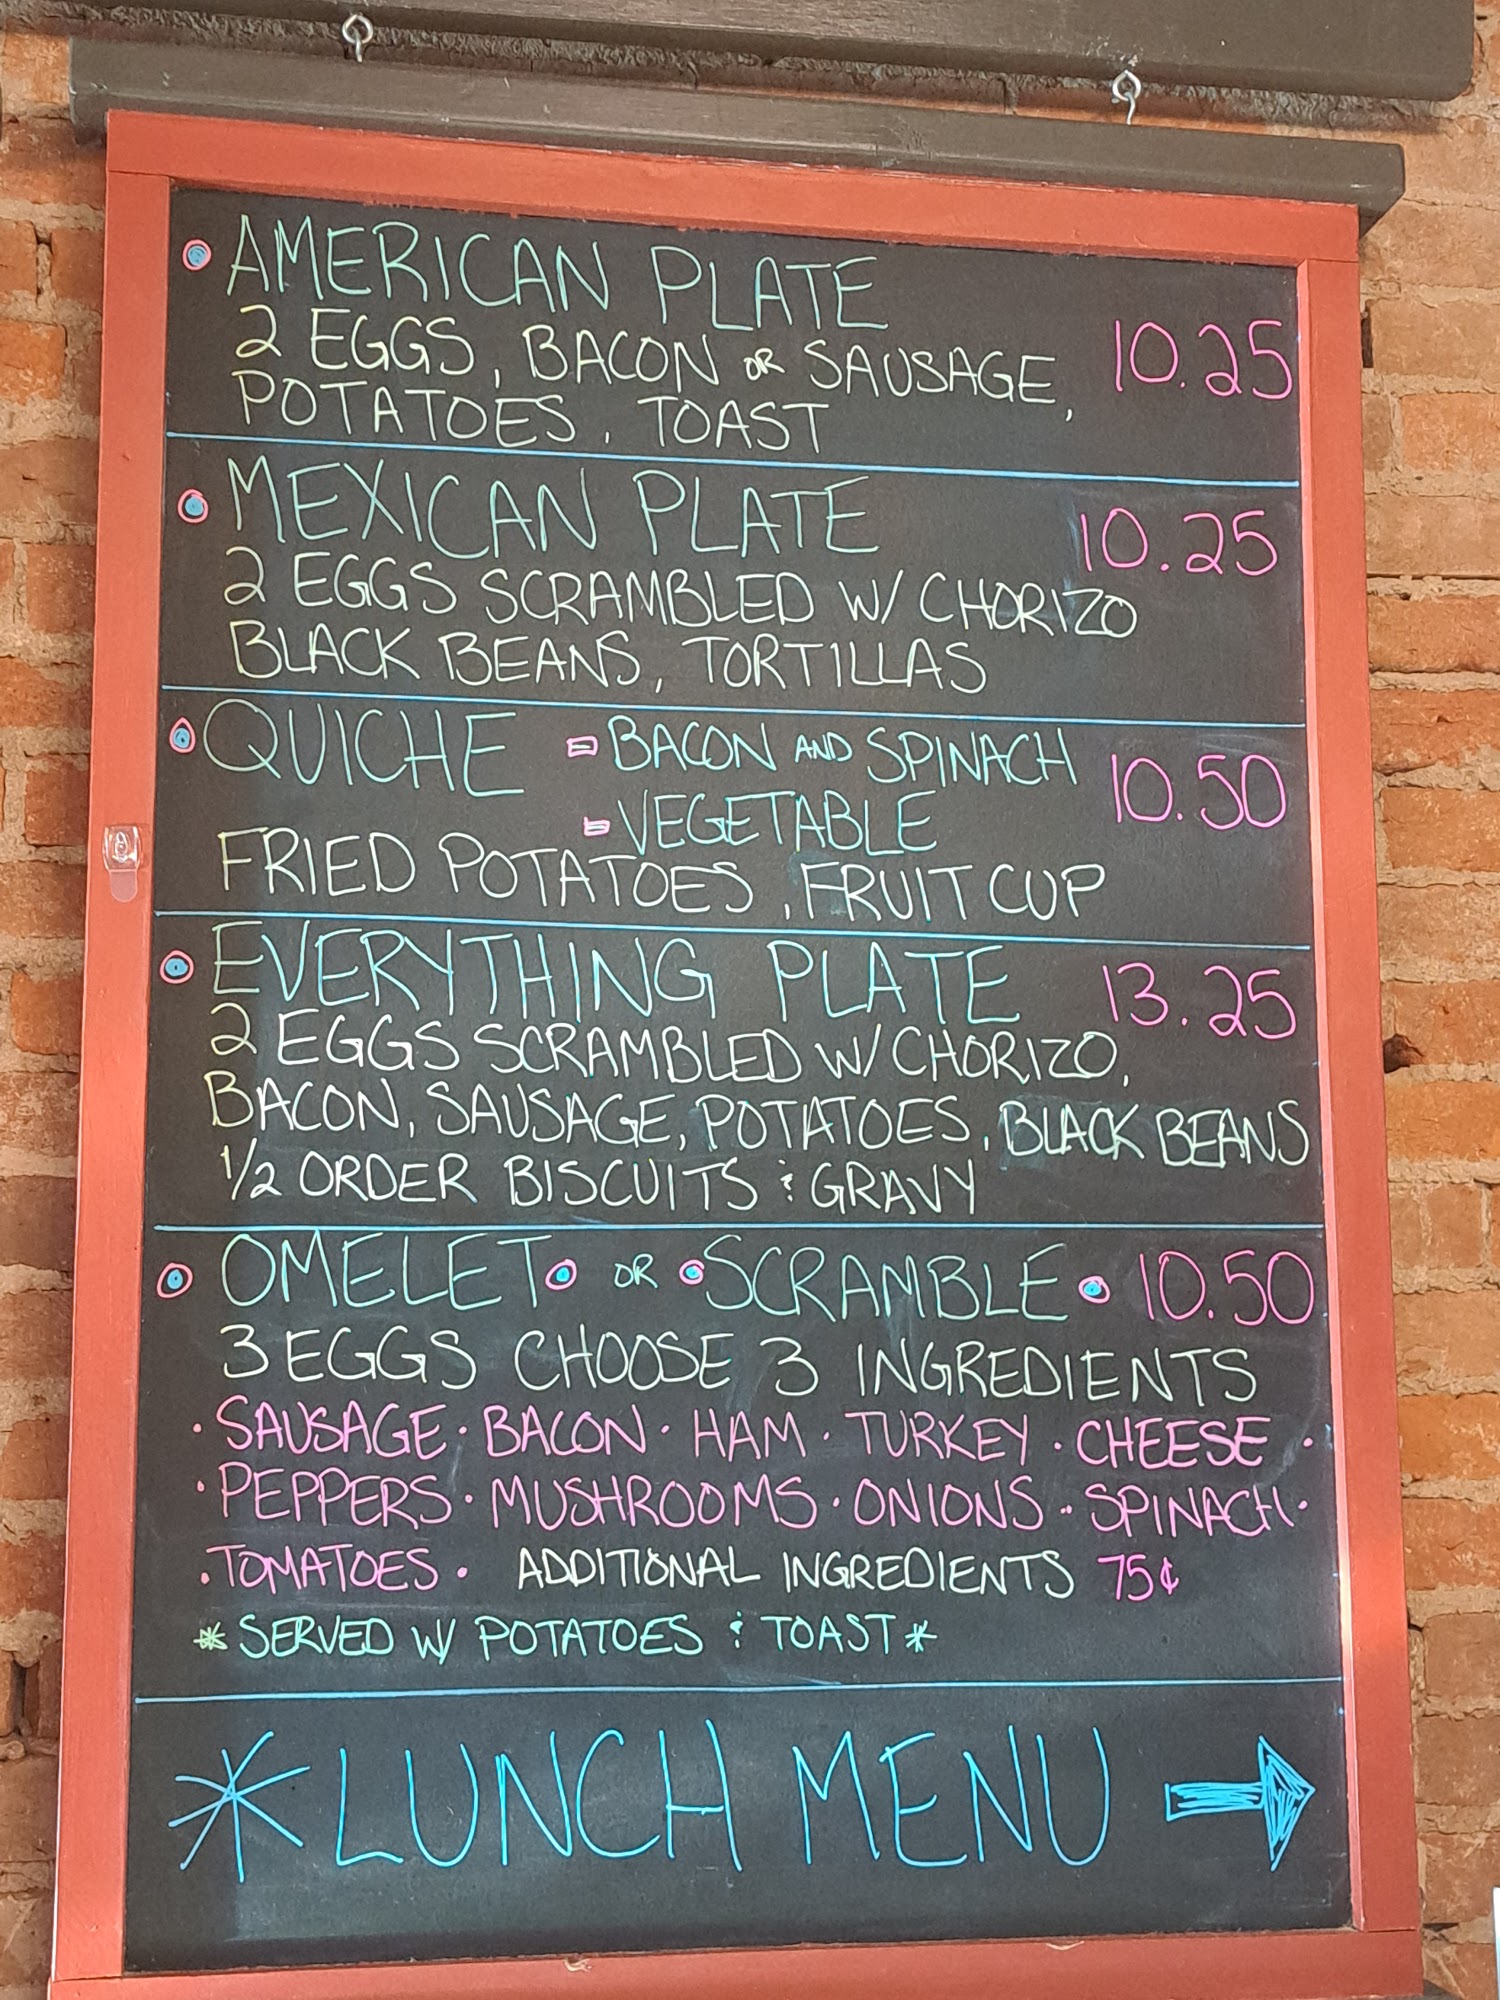 AMERICAN PLATE
2 EGGS, BACON OR SAUSAGE, 10.25
POTATOES, TOAST
MEXICAN PLATE 10.25
2 EGGS SCRAMBLED W/ CHORIZO
BLACK BEANS, TORTILLAS
QUICHE - BACON AND SPINACH 10.50
- VEGETABLE
FRIED POTATOES, FRUIT CUP
EVERYTHING PLATE 13.25
2 EGGS SCRAMBLED W/ CHORIZO,
BACON, SAUSAGE, POTATOES, BLACK BEANS
1/2 ORDER BISCUITS & GRAVY
OMELET OR SCRAMBLE 10.50
3 EGGS CHOOSE 3 INGREDIENTS
· SAUSAGE · BACON · HAM · TURKEY · CHEESE ·
· PEPPERS · MUSHROOMS · ONIONS · SPINACH ·
· TOMATOES · ADDITIONAL INGREDIENTS 75¢
* SERVED W/ POTATOES & TOAST *
* LUNCH MENU →